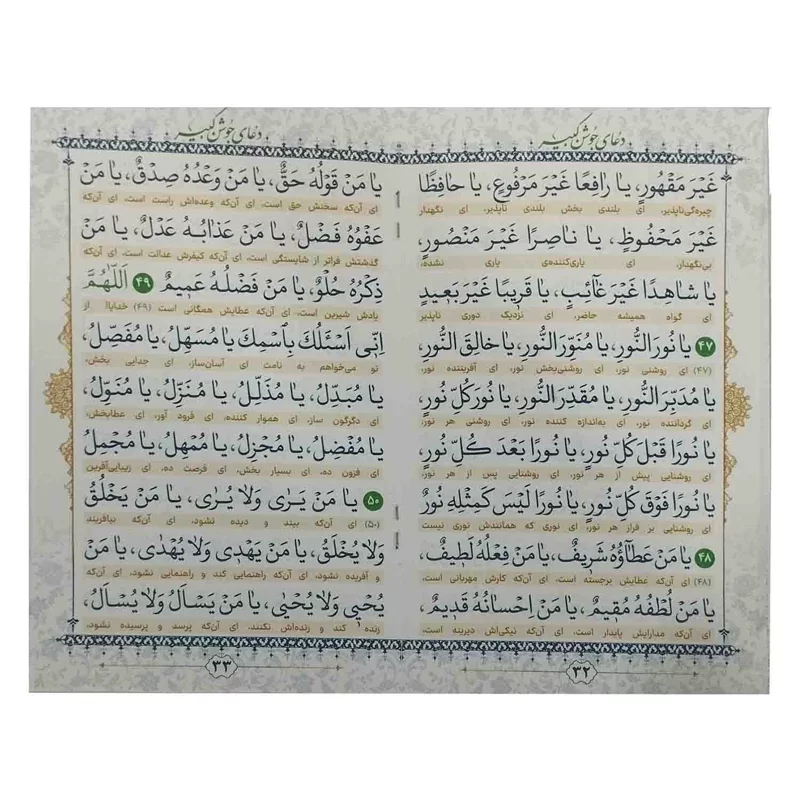 دعای جوشن کبیر
غَیْرَ مَقْهُورٍ، یا رافِعًا غَیْرَ مَرْفُوعٍ، یا حافِظًا
چیره‌گی‌ناپذیر، ای بلندی بخش بلندی ناپذیر، ای نگهدار
غَیْرَ مَحْفُوظٍ، یا ناصِرًا غَیْرَ مَنْصُورٍ،
بی‌نگهدار، ای یاری‌کننده‌ی یاری نشده،
یا شاهِدًا غَیْرَ غآئِبٍ، یا قَریبًا غَیْرَ بَعیدٍ
ای گواه همیشه حاضر، ای نزدیک دوری ناپذیر
۴۷ یا نُورَ النُّورِ، یا مُنَوِّرَ النُّورِ، یا خالِقَ النُّورِ،
(۴۷) ای روشنی نور، ای روشنی‌بخش نور، ای آفریننده نور،
یا مُدَبِّرَ النُّورِ، یا مُقَدِّرَ النُّورِ، یا نُورَ کُلِّ نُورٍ،
ای گرداننده نور، ای به‌اندازه کننده نور، ای روشنی هر نور،
یا نُورًا قَبْلَ کُلِّ نُورٍ، یا نُورًا بَعْدَ کُلِّ نُورٍ،
ای روشنایی پیش از هر نور، ای روشنایی پس از هر نور،
یا نُورًا فَوْقَ کُلِّ نُورٍ، یا نُورًا لَیْسَ کَمِثْلِهِ نُورٌ
ای روشنایی بر فراز هر نور، ای نوری که همانندش نوری نیست
۴۸ یا مَنْ عَطآؤُهُ شَریفٌ، یا مَنْ فِعْلُهُ لَطیفٌ،
(۴۸) ای آن‌که عطایش برجسته است، ای آن‌که کارش مهربانی است،
یا مَنْ لُطْفُهُ مُقیمٌ، یا مَنْ اِحْسانُهُ قَدیمٌ،
ای آن‌که مدارایش پایدار است، ای آن‌که نیکی‌اش دیرینه است،
۳۲
دعای جوشن کبیر
یا مَنْ قَوْلُهُ حَقٌّ، یا مَنْ وَعْدُهُ صِدْقٌ، یا مَنْ
ای آن‌که سخنش حق است، ای آن‌که وعده‌اش راست است، ای آن‌که
عَفْوُهُ فَضْلٌ، یا مَنْ عَذابُهُ عَدْلٌ، یا مَنْ
گذشتش فراتر از شایستگی است، ای آن‌که کیفرش عدالت است، ای آن‌که
ذِکْرُهُ حُلْوٌ، یا مَنْ فَضْلُهُ عَمیمٌ ۴۹ اَللّٰهُمَّ
یادش شیرین است، ای آن‌که عطایش همگانی است (۴۹) خدایا! از
اِنّی اَسْئَلُکَ بِاسْمِکَ یا مُسَهِّلُ، یا مُفَصِّلُ،
تو می‌خواهم به نامت ای آسان‌ساز، ای جدایی بخش،
یا مُبَدِّلُ، یا مُذَلِّلُ، یا مُنَزِّلُ، یا مُنَوِّلُ،
ای دگرگون ساز، ای هموار کننده، ای فرود آور، ای عطابخش،
یا مُفْضِلُ، یا مُجْزِلُ، یا مُمْهِلُ، یا مُجْمِلُ
ای فزون ده، ای بسیار بخش، ای فرصت ده، ای زیبایی‌آفرین
۵۰ یا مَنْ یَرٰی وَلا یُرٰی، یا مَنْ یَخْلُقُ
(۵۰) ای آن‌که بیند و دیده نشود، ای آن‌که بیافریند
وَلا یُخْلَقُ، یا مَنْ یَهْدی وَلا یُهْدٰی، یا مَنْ
و آفریده نشود، ای آن‌که راهنمایی کند و راهنمایی نشود، ای آن‌که
یُحْیی وَلا یُحْیٰی، یا مَنْ یَسْأَلُ وَلا یُسْأَلُ،
زنده کند و زنده‌اش نکنند، ای آن‌که پرسد و پرسیده نشود،
۳۳